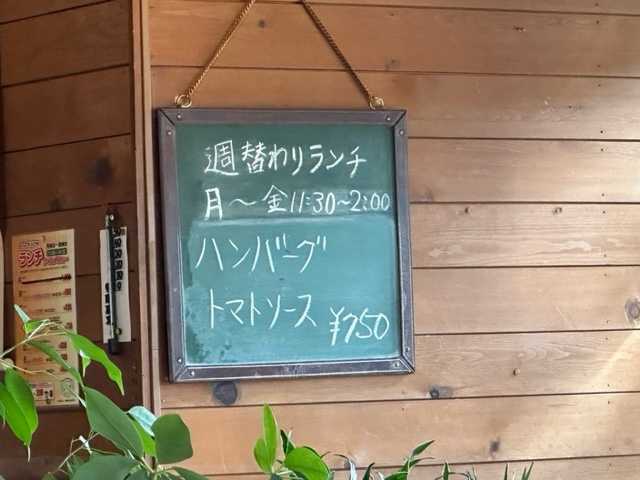 週替わりランチ
月～金11:30～2:00
ハンバーグ
トマトソース ¥750
ランチ